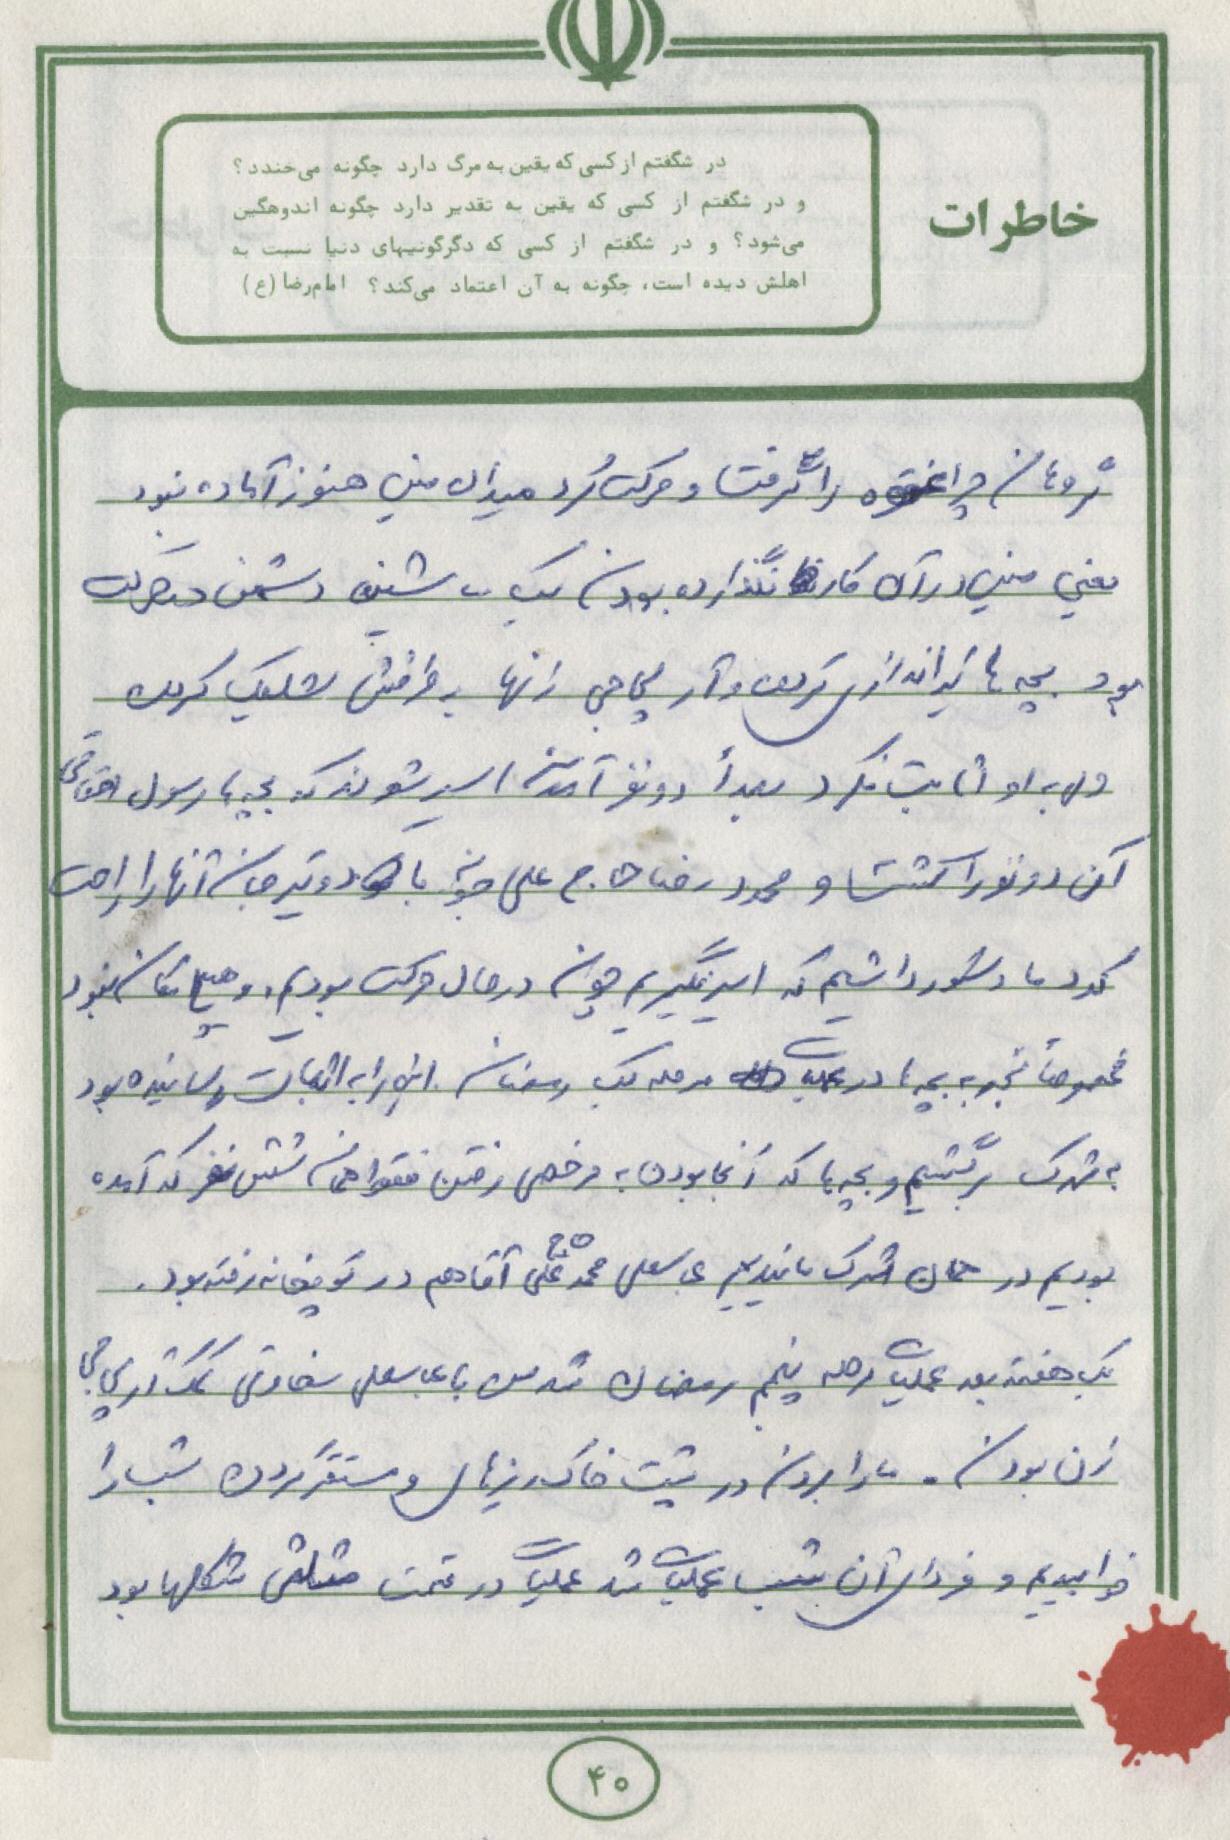 خاطرات
در شگفتم از کسی که یقین به مرگ دارد چگونه می‌خندد؟
و در شگفتم از کسی که یقین به تقدیر دارد چگونه اندوهگین
می‌شود؟ و در شگفتم از کسی که دگرگونیهای دنیا نسبت به
اهلش دیده است، چگونه به آن اعتماد می‌کند؟ امام‌رضا (ع)
را گرفت و حرکت کرد میدان مین هنوز آماده نبود
یعنی مین در آن کار نگذارده بودن یک دشمن
بود بچه ها تیراندازی کردن و آر پی جی زنها به طرفش شلیک کردن
ولی به او ثابت نکرد بعداً دو نفر آمدن اسیر شوند که بچه ها رسول
آن دو نفر را کشت و محمود رضا حاج علی با دو تیر آنها را راحت
کرد ما دستور داشتیم که اسیر نگیریم چون در حال حرکت بودیم و هیچ نبود
مخصوصاً تجربه بچه ها در عملیات مرحله یک رمضان این را به اثبات رسانیده بود
به شهرک برگشتیم و بچه ها که آنجا بودن به مرخصی رفتن فقط همان شش نفر که آمده
بودیم در همان شهرک ماندیم عباسعلی محمد علی آقا هم در توپخانه رفته بود.
یک هفته بعد عملیات مرحله پنجم رمضان شد من با عباسعلی سخاوتی کمک آر پی جی
زن بودن. ما را بردن در پشت خاک ریزهای و مستقر کردن شب را
خوابیدیم و فردای آن شب عملیات شد عملیات در قسمت مثلثی شکلها بود
۴۰